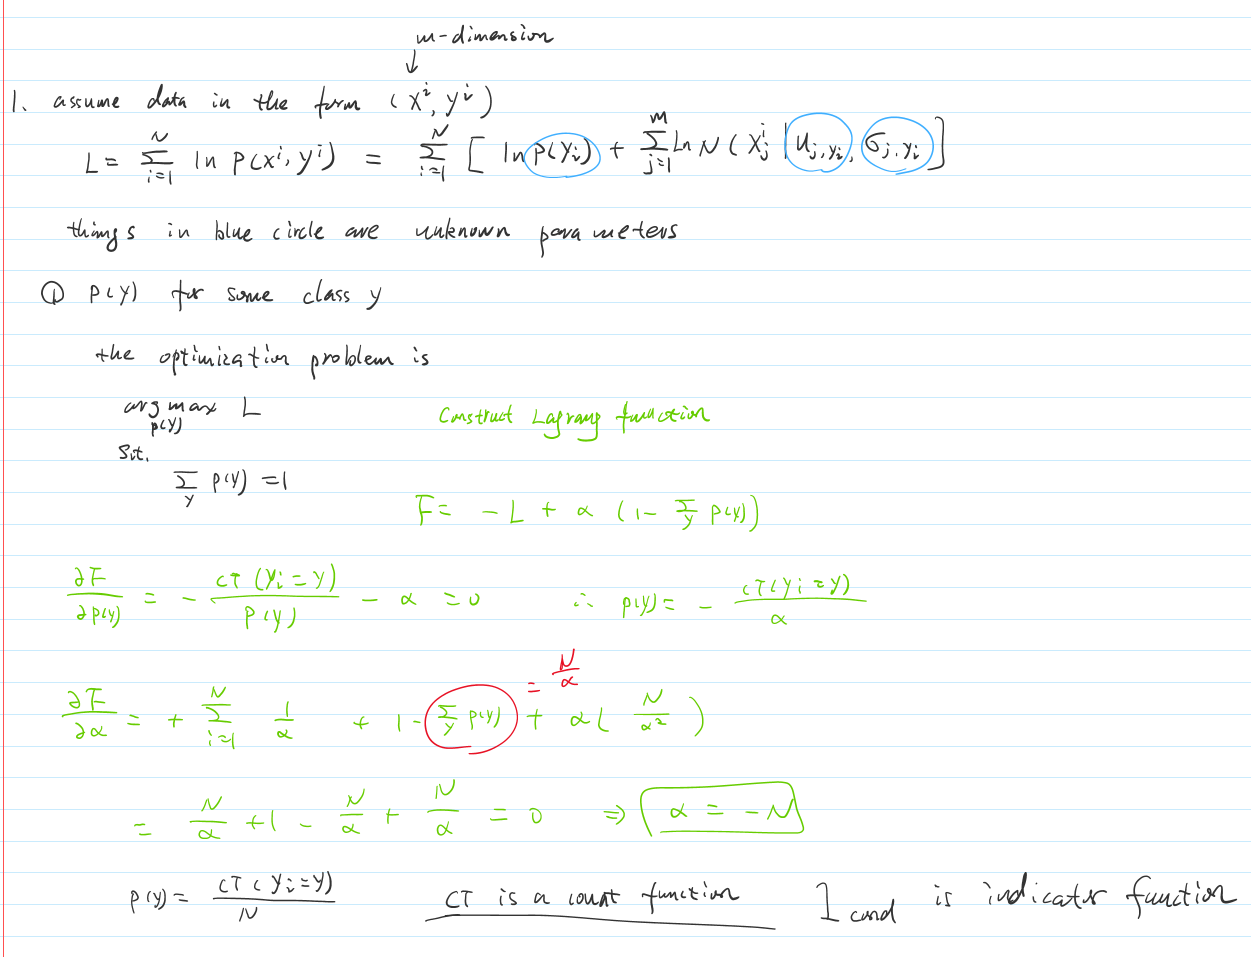 m-dimension
↓
1. assume data in the form (x^i, y^i)
L = \sum_{i=1}^{N} ln p(x^i, y^i) = \sum_{i=1}^{N} [ ln p(y_i) + \sum_{j=1}^{m} ln N(x_j^i | u_{j,y_i}, σ_{j,y_i} ]
things in blue circle are unknown parameters
① p(y) for some class y
the optimization problem is
arg max_{p(y)} L
s.t.
\sum_y p(y) = 1
Construct Lagrang function
F = - L + α (1 - \sum_y p(y))
∂F/∂p(y) = - CT(y_i = y)/p(y) - α = 0 ∴ p(y) = - CT(y_i = y)/α
= N/α
∂F/∂α = + \sum_{i=1}^{N} 1/α + 1 - \sum_y p(y) + α( N/α² )
= N/α + 1 - N/α + N/α = 0 ⇒ α = -N
p(y) = CT(y_i = y)/N CT is a count function 1_{cond} is indicator function